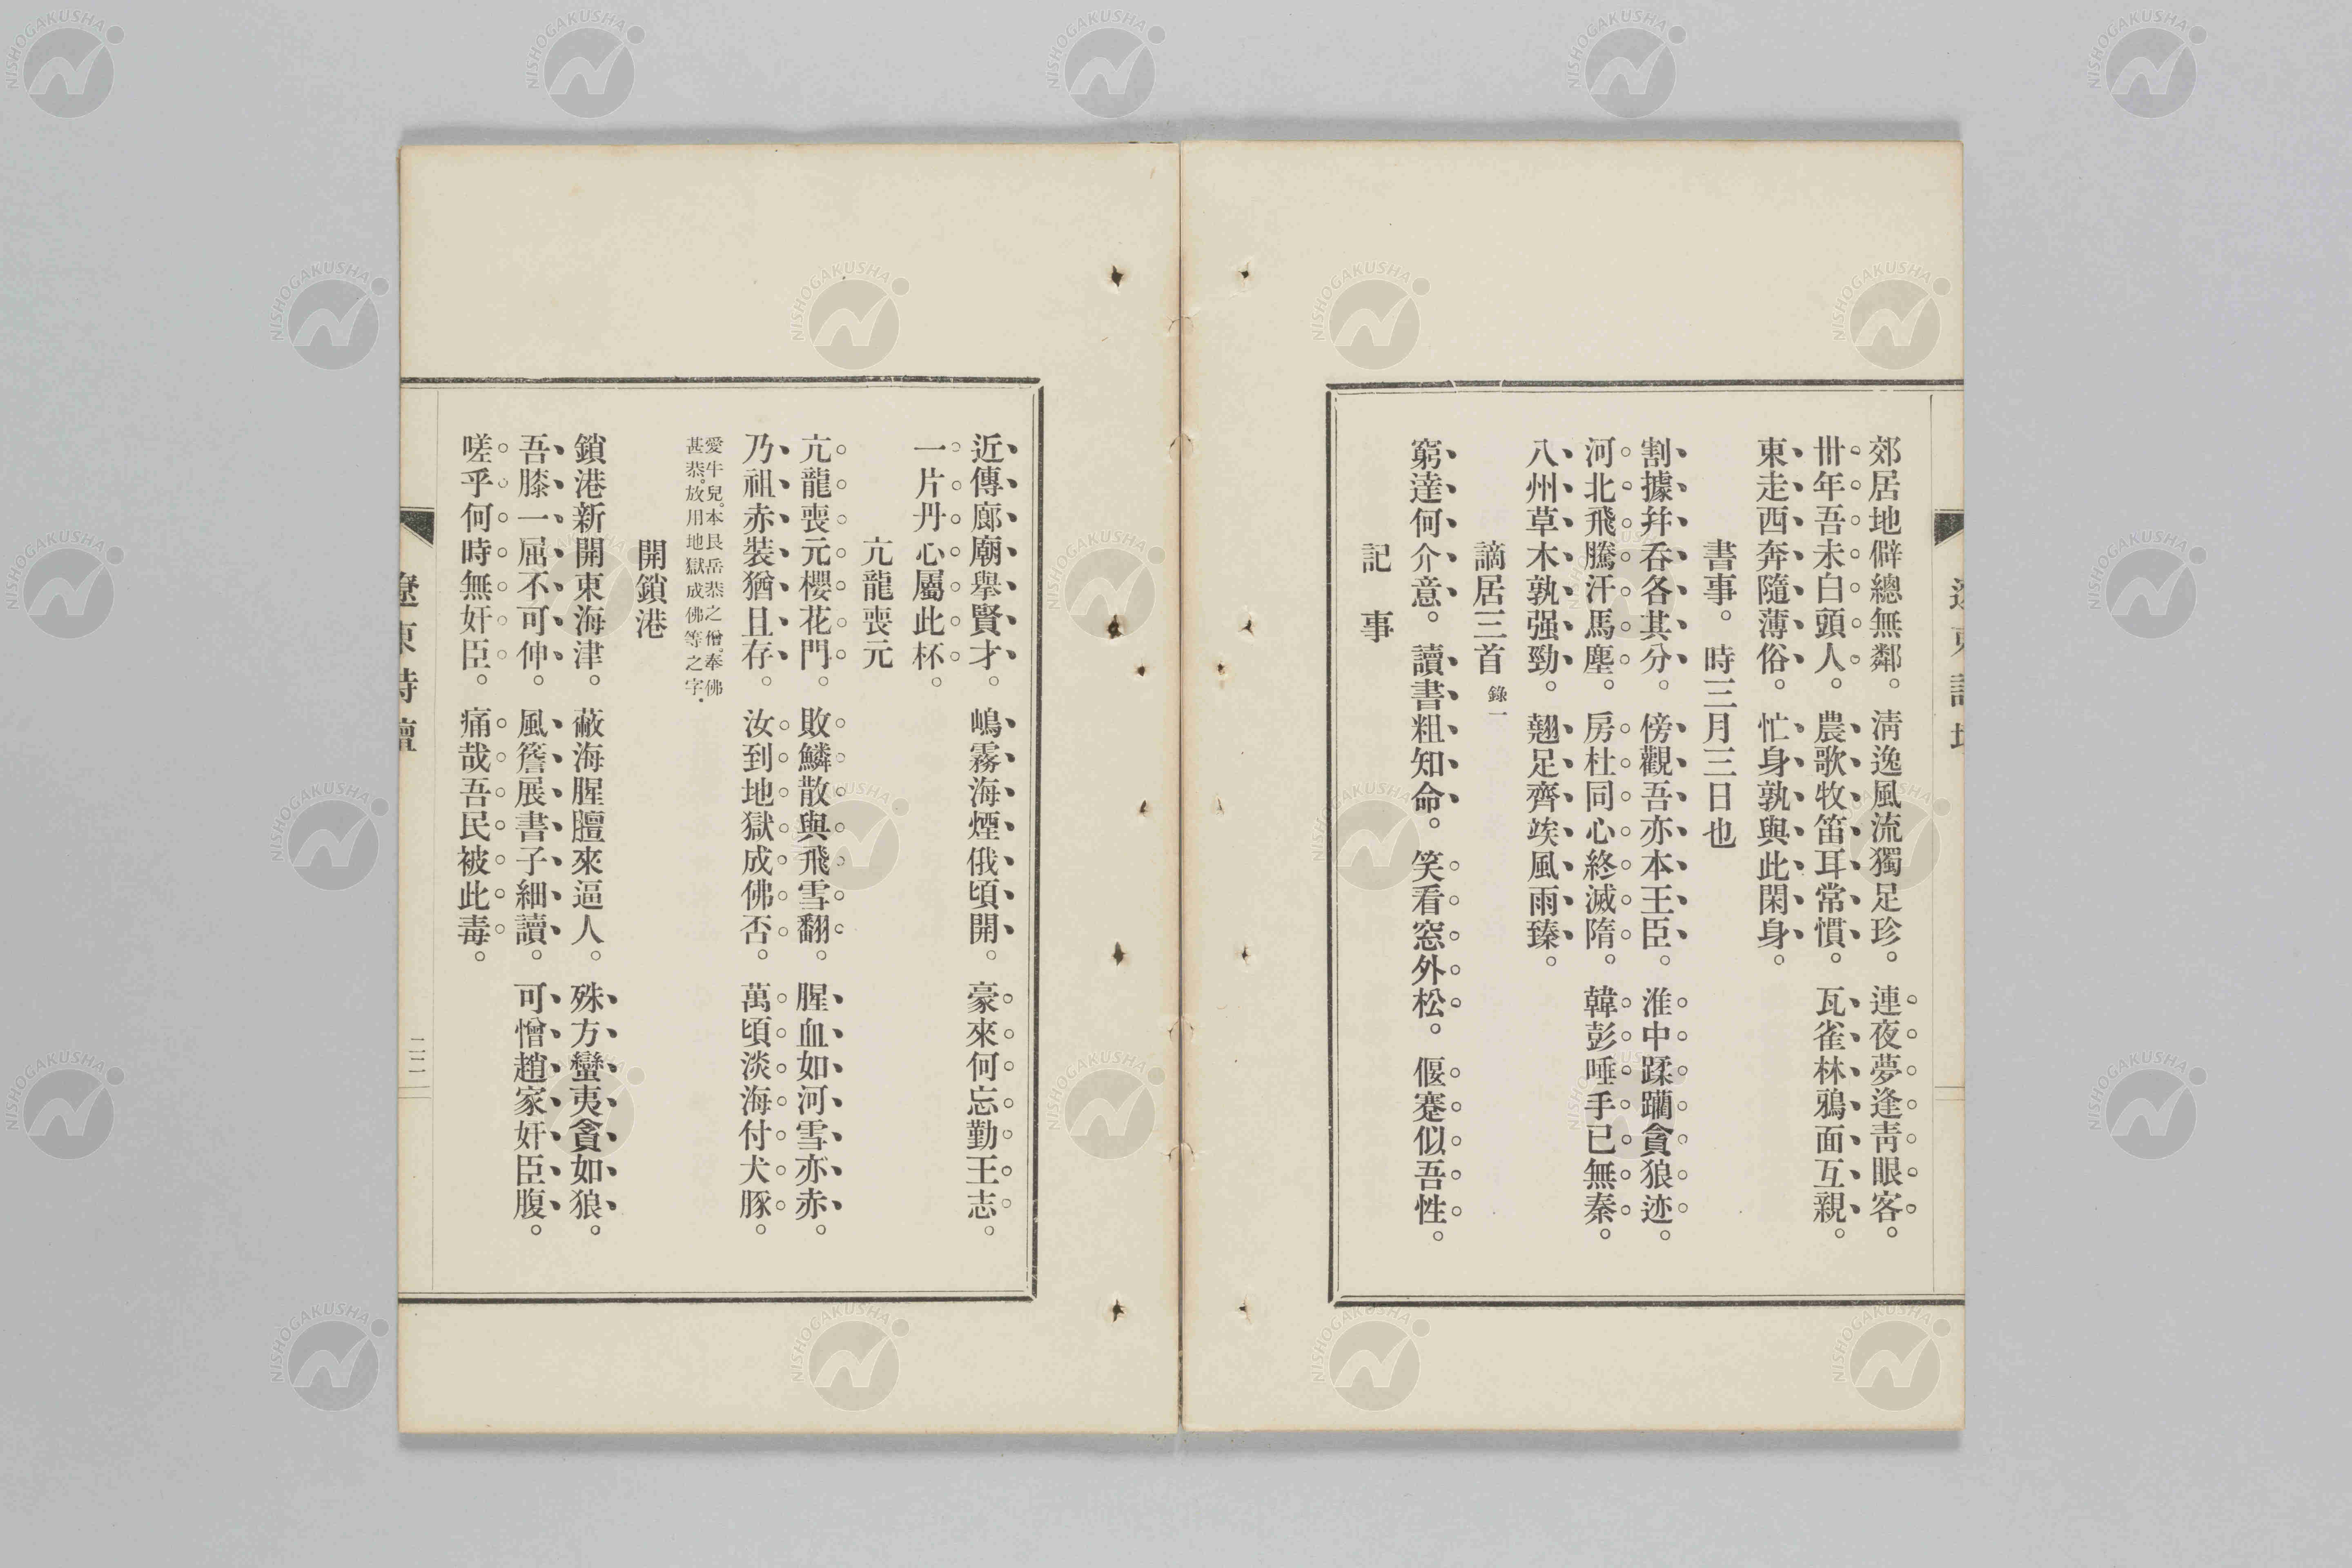 郊居地僻總無鄰。淸逸風流獨足珍。連夜夢逢靑眼客。
卅年吾未白頭人。農歌牧笛耳常慣。瓦雀林鴉面互親。
東走西奔隨薄俗。忙身孰與此閑身。
書事。時三月三日也
割據幷呑各其分。傍觀吾亦本王臣。淮中蹂躪貪狼迹。
河北飛騰汗馬塵。房杜同心終滅隋。韓彭唾手已無秦。
八州草木孰强勁。翹足齊竢風雨臻。
謫居三首 錄一
窮達何介意。讀書粗知命。笑看窓外松。偃蹇似吾性。
記事
近傳廊廟擧賢才。嶋霧海煙俄頃開。豪來何忘勤王志。
一片丹心屬此杯。
亢龍喪元
亢龍喪元櫻花門。敗鱗散與飛雪翻。腥血如河雪亦赤。
乃祖赤裝猶且存。汝到地獄成佛否。萬頃淡海付犬豚。
愛牛兒。本艮岳恭之僧。奉佛
甚恭。放用地獄成佛等之字.
開鎖港
鎖港新開東海津。蔽海腥膻來逼人。殊方蠻夷貪如狼。
吾膝一屈不可伸。風簷展書子細讀。可憎趙家奸臣腹。
嗟乎何時無奸臣。痛哉吾民被此毒。
遼東詩壇
二二
NISHOGAKUSHA